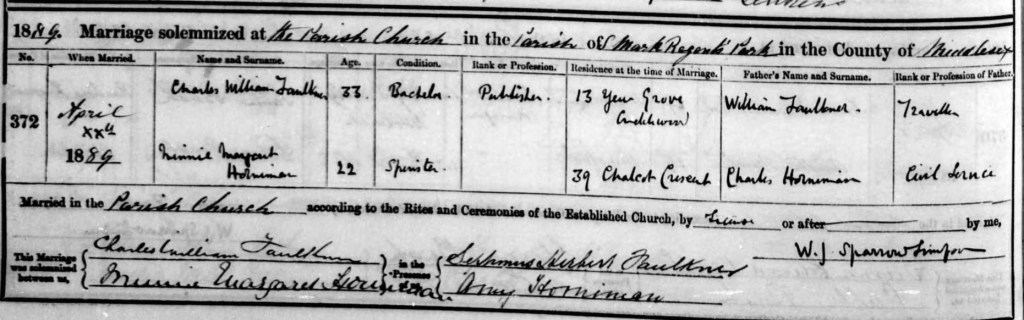 1889. Marriage solemnized at the Parish Church in the Parish of St Mark Regents Park in the County of Middlesex
No. When Married. Name and Surname. Age. Condition. Rank or Profession. Residence at the time of Marriage. Father's Name and Surname. Rank or Profession of Father.
Charles William Faulkner 33 Bachelor Publisher. 13 Yew Grove William Faulkner. Traveller
372 April
XXth
1889 Minnie Margaret
Horniman 22 Spinster. 39 Chalcot Crescent Charles Horniman Civil Service
Married in the Parish Church according to the Rites and Ceremonies of the Established Church, by License or after by me,
This Marriage was solemnized between us, Charles William Faulkner in the Presence of us, Herbert Faulkner W. J. Sparrow Simpson
Minnie Margaret Horniman Amy Horniman